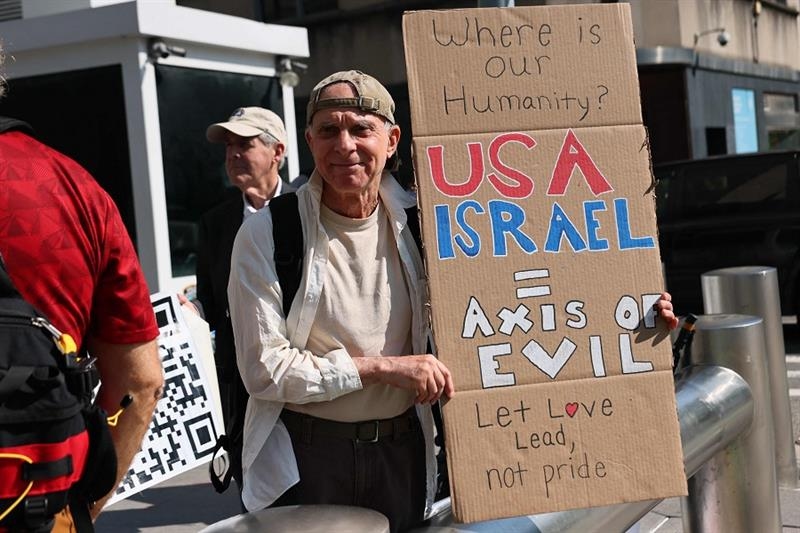 Where is
our
Humanity?
USA
ISRAEL
=
AXIS OF
EVIL
Let Love
Lead,
not pride